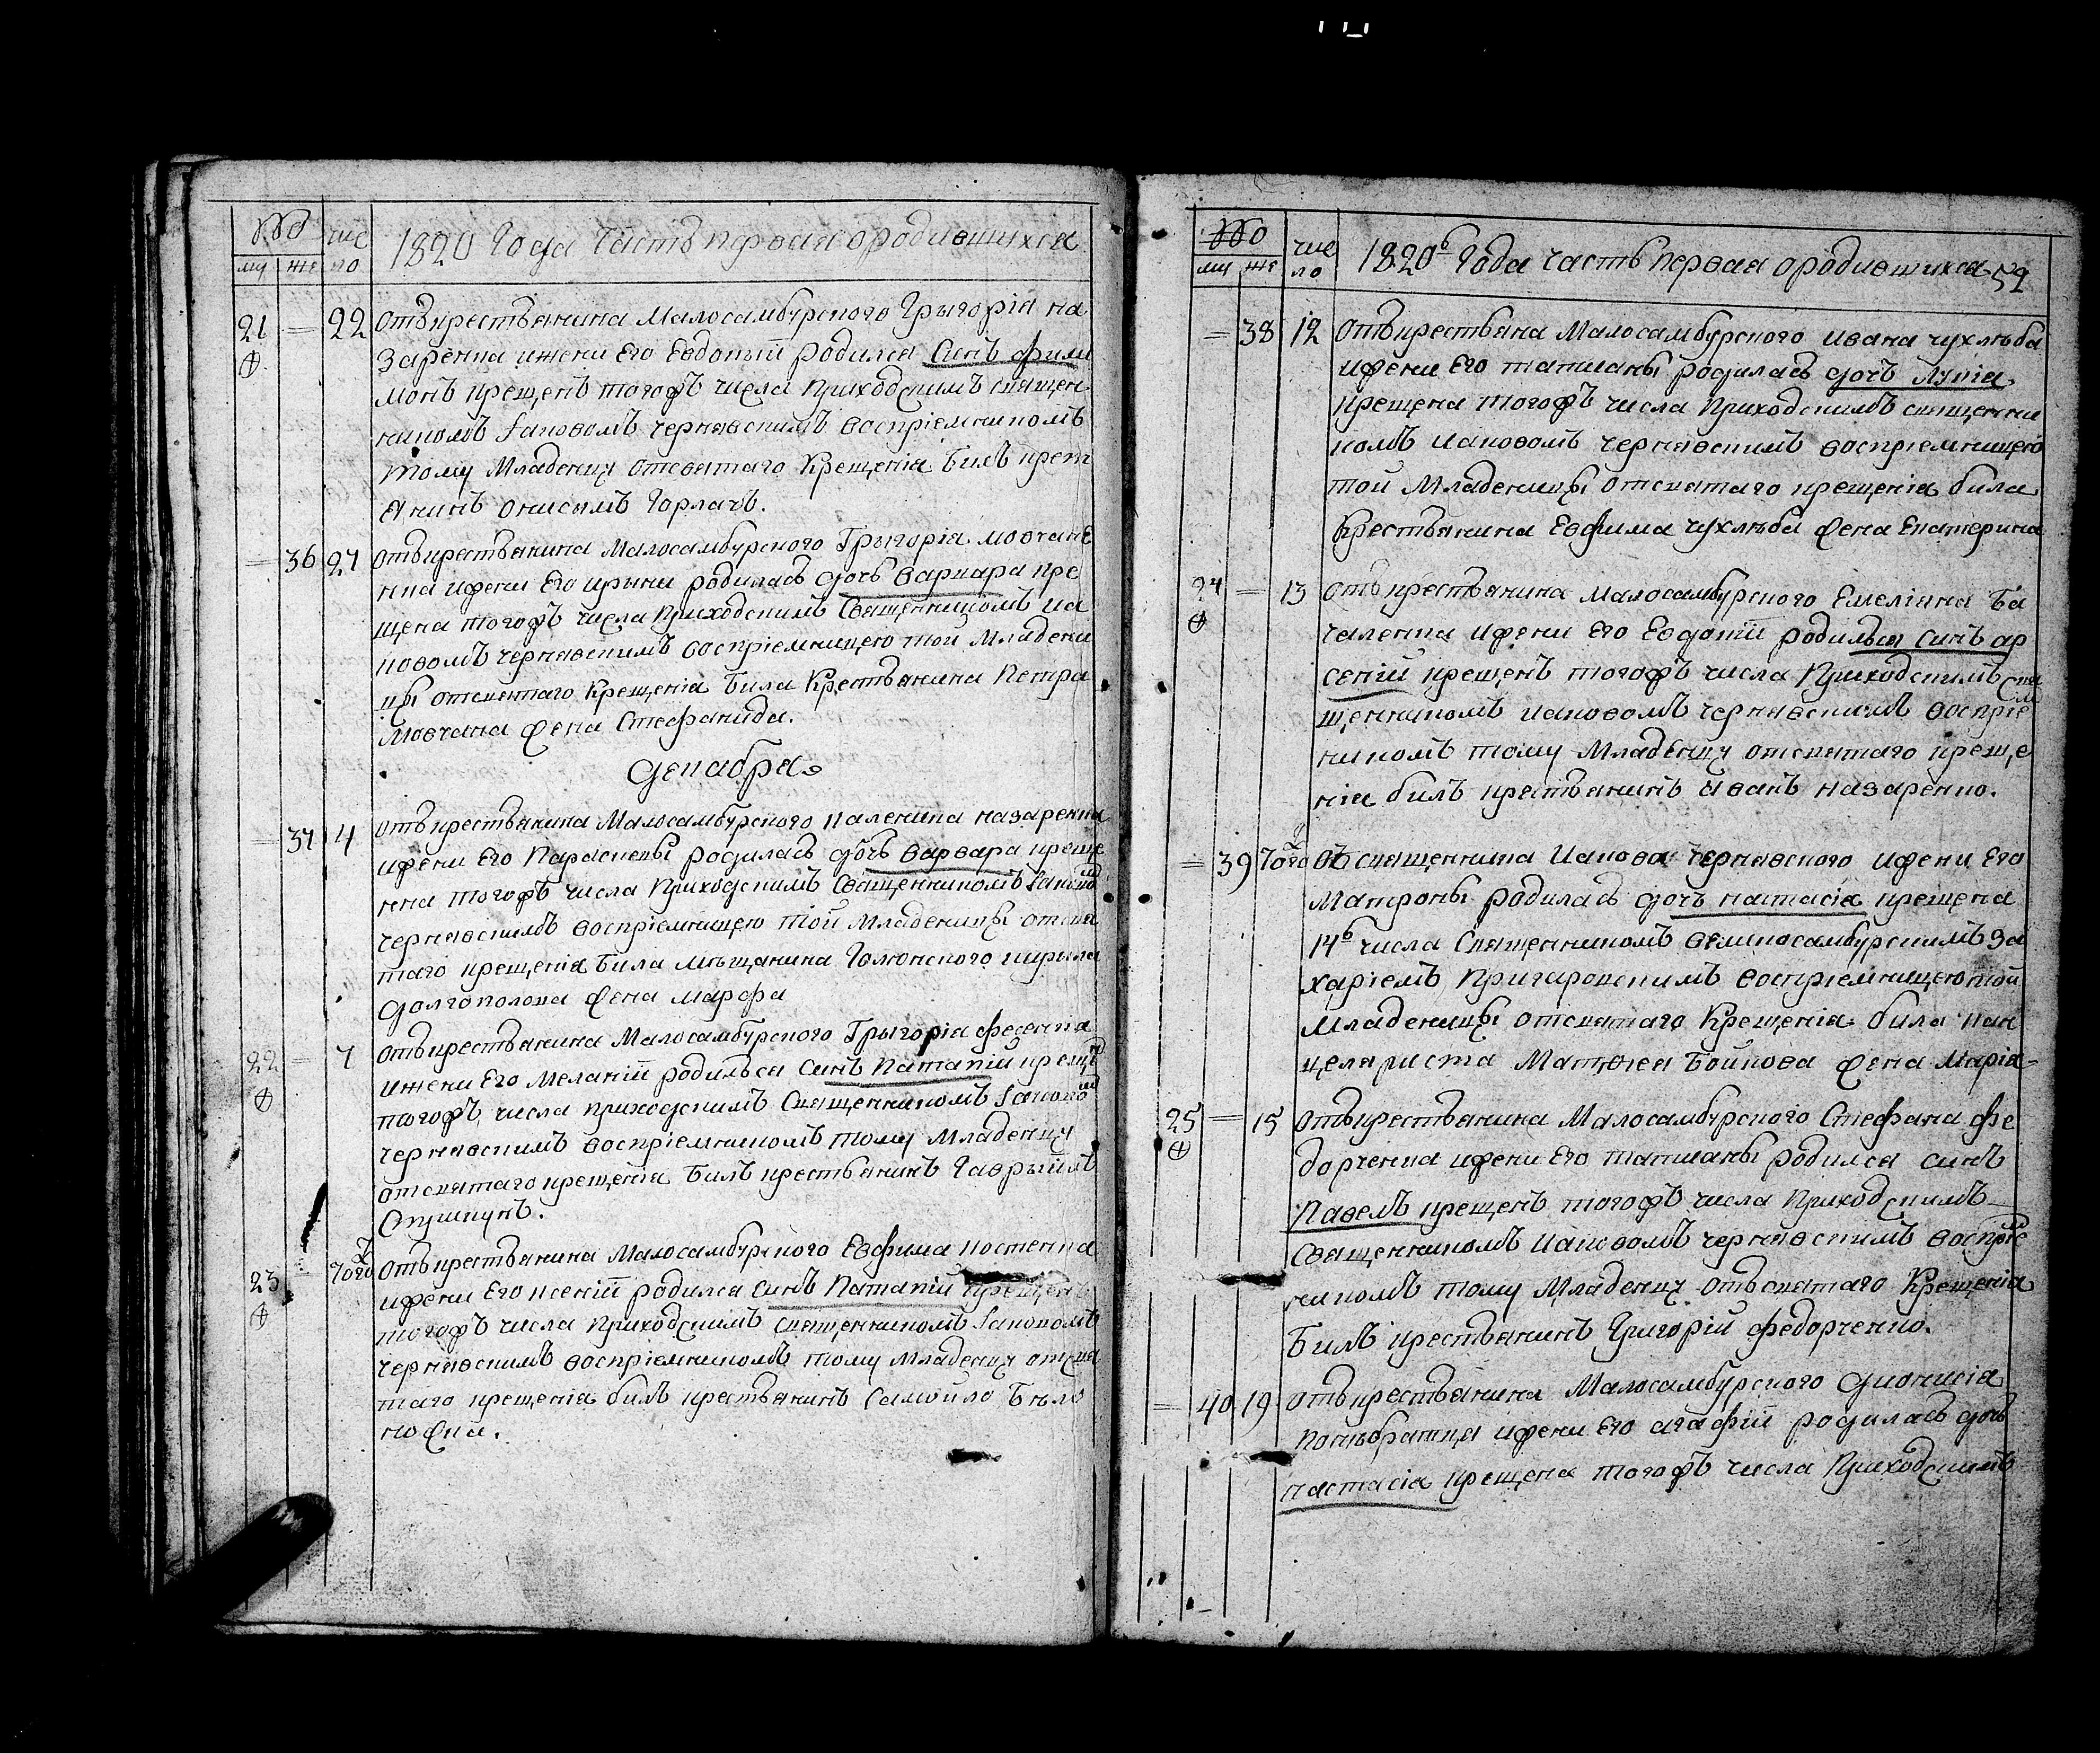 № чис 1820 Года Часть первая ородившихся
му же ло
21 = 22 Отъкрестьянина Малосамбурского Грыгорія на
заренка ижени Его Евдокіи родился Синъ фили
монъ крещенъ тогожъ числа Приходскимъ священ
никомъ Іаковомъ чернявскимъ воспріемникомъ
тому Младенцу отсвятаго Крещенія билъ крест
янинъ Онисимъ Горлачъ.
= 36 27 Отъкрестьянина Малосамбурского Грыгорія мовчане
нка ижени Его ирыни родилась дочъ варвара кре
щена тогожъ числа Приходскимъ Священникомъ иа
ковомъ чернявскимъ воспріемницею той Младени
цы отсвятаго Крещенія била Крестьянина Петра
Мовчана жена Стефанида.
Декабря
= 37 4 Отъкрестьянина Малосамбурского назаренка
ижени Его Параскевы родилась дочъ варвара креще
нна тогожъ числа Приходскимъ Священникомъ Іаковомъ
чернявскимъ воспріемницею той Младеницы отсвя
таго крещенія била мѣщанина кирыла
Долгополова жена марфа
22 = 7 Отъкрестьянина Малосамбурского Грыгорія
ижени Его Меланіи родилься Синъ Патапій крещенъ
тогожъ числа приходскимъ Священникомъ Іаковомъ
чернявскимъ воспріемникомъ тому Младенцу
отсвятаго крещенія Билъ крестьянинъ Гаврыилъ

23 = Того Отъкрестьянина Малосамбурского Евфима костенка
ижени Его ксеніи родился синъ Патапій крещенъ
тогожъ числа приходскимъ священникомъ Іаковомъ
чернявскимъ воспріемникомъ тому Младенцу отсвя
таго крещенія билъ крестьянинъ Самойло Бѣло
ножка.
№ чис 1820б Года часть первая ородившихся 59
му же ло
= 38 12 Отъкрестьяина Малосамбурского ивана чухлѣба
ижени Его татианы родилась дочъ Лукія
крещена тогожъ числа Приходскимъ священни
комъ иаковомъ чернявскимъ воспріемницею
той Младеницы отсвятаго крещенія била
Крестьянина Евфима чухлѣба жена Екатерина
24 = 13 Отъкрестьянина Малосамбурского Емеліяна Ба
каленка ижени Его Евдокіи родилься синъ ар
сеній крещенъ тогожъ числа Приходскимъ Свя
щенникомъ иаковомъ чернявскимъ воспріем
никомъ тому Младенцу отсвятаго креще
нія билъ крестьянинъ иванъ назаренко.
= 39 Того Отъ священника Иакова чернявского ижени Его
Матроны родилась дочъ настасія крещена
14б числа Священникомъ великосамбурскимъ За
харіемъ Пригаровскимъ воспріемницею той
Младеницы отсвятаго Крещенія била кан
целяриста Матѳея Бойкова жена Марія
25 = 15 Отъкрестьянина Малосамбурского Стефана фе
дорченка ижени Его татианы родился синъ
Павелъ крещенъ тогожъ числа Приходскимъ
Священникомъ иаковомъ чернявскимъ воспріем
никомъ тому Младенцу отъсвятаго Крещенія
Билъ крестьянинъ Григорій федорченко.
= 40 19 Отъкрестьянина Малосамбурского Дионисія
ижени Его агафіи родилась дочь
настасія крещена тогожъ числа Приходскимъ